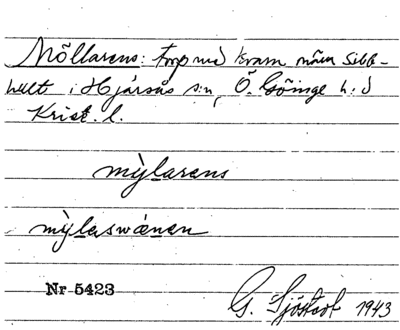 Möllarens: torp med kvarn nära Sibb-
hult i Hjärsås s:n, Ö. Göinge h:d
Krist. l.
mỳlarens
mỳlaswænen
Nr 5423
G. Sjöstedt 1943